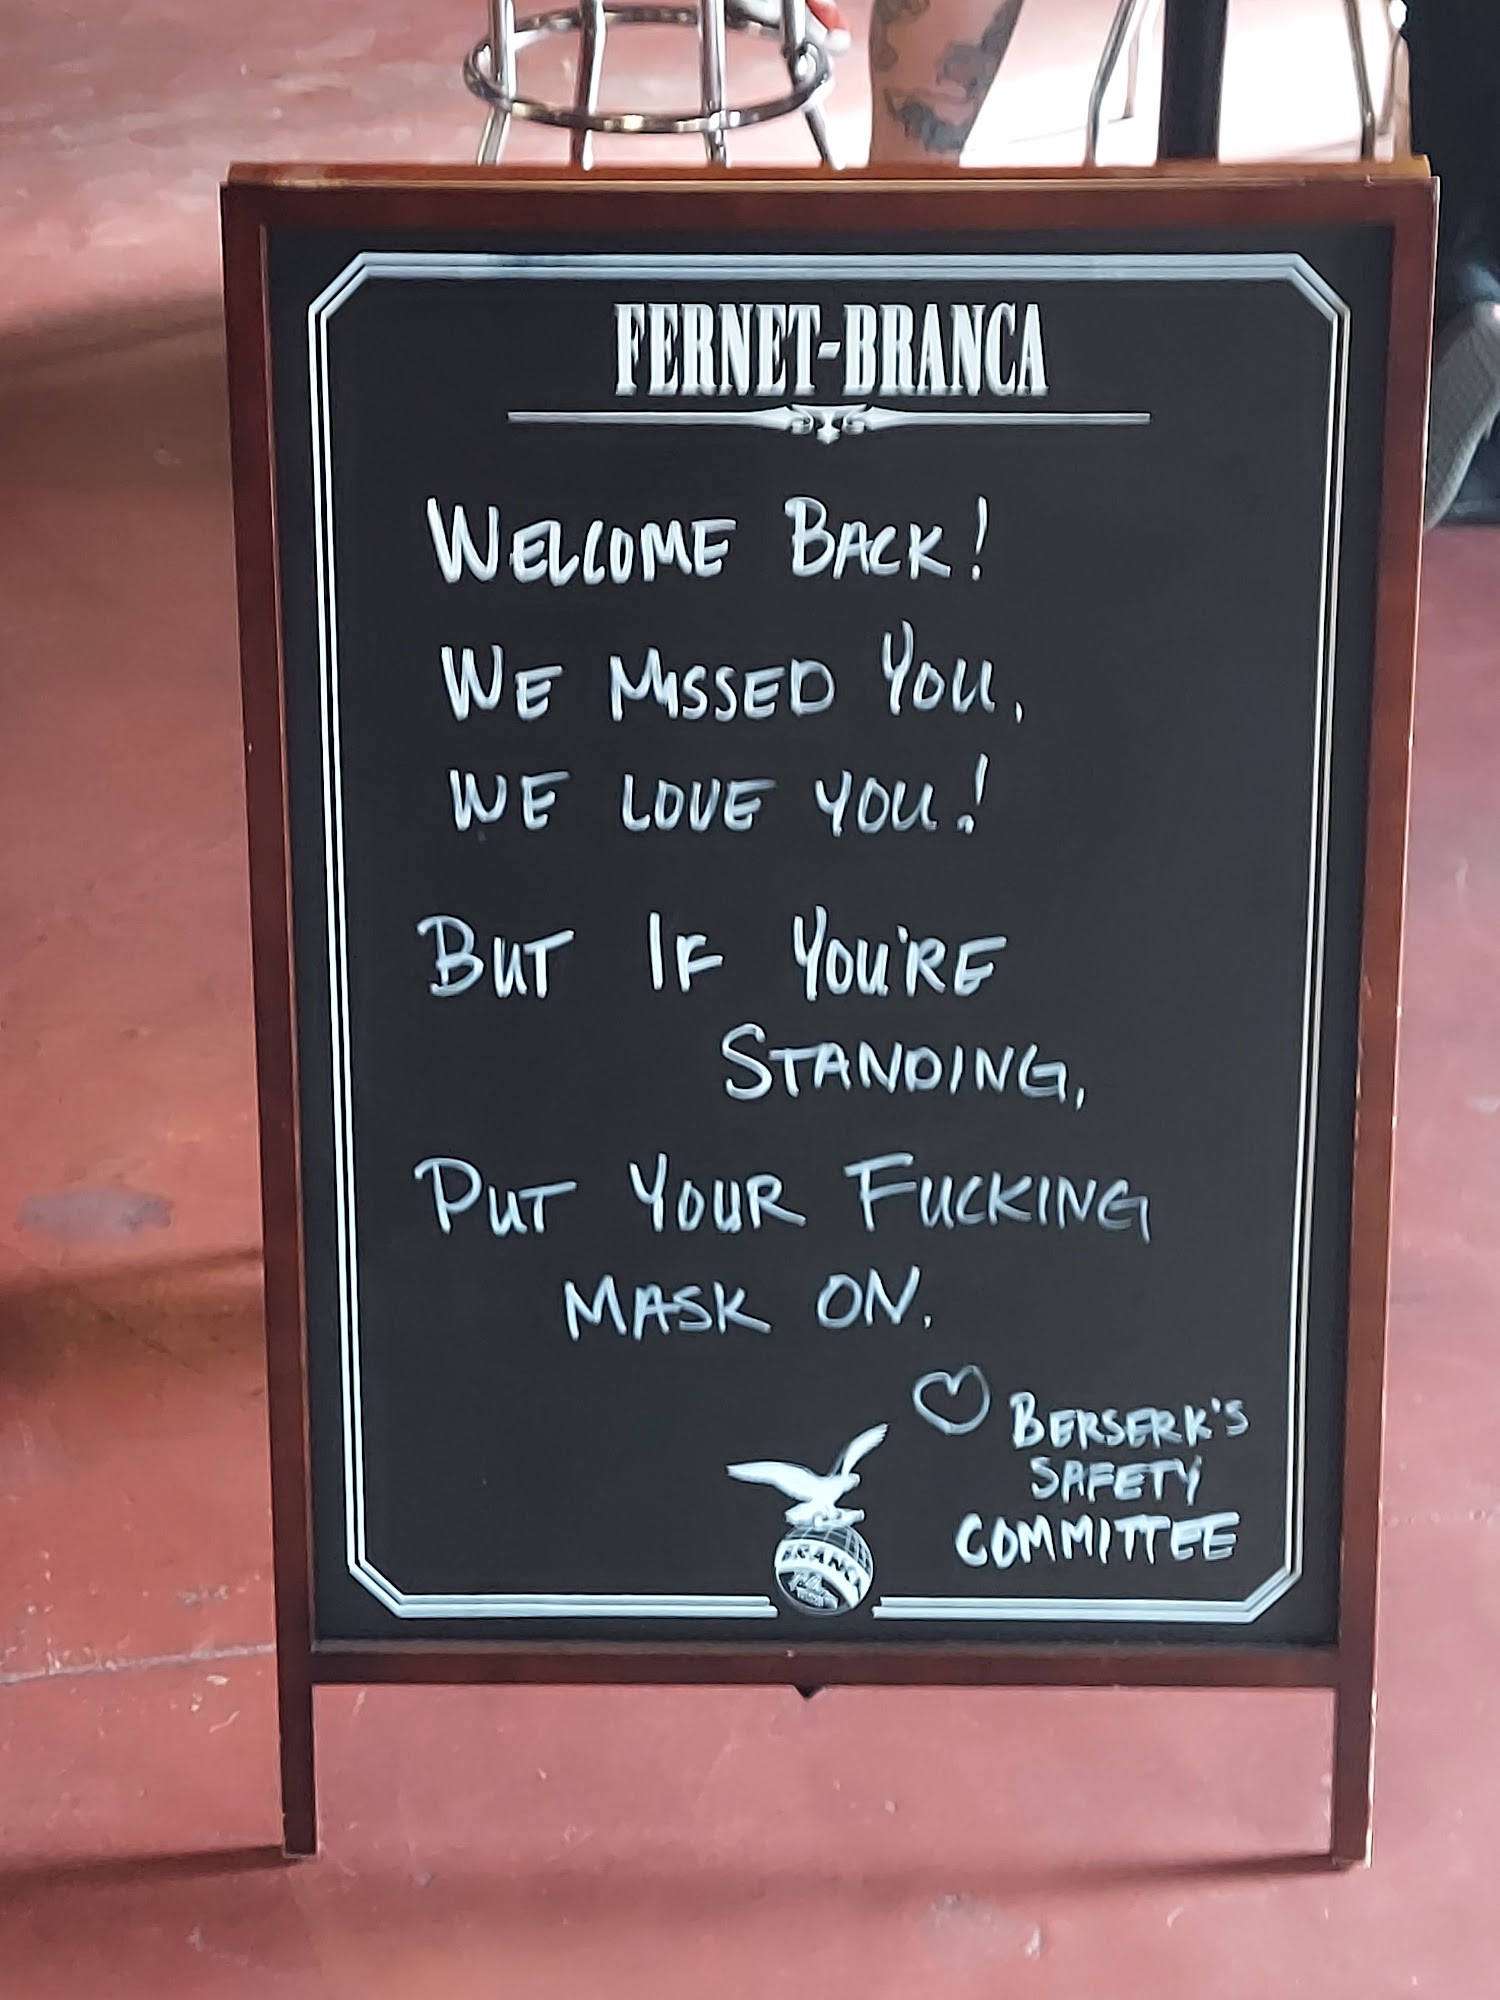 FERNET-BRANCA
WELCOME BACK!
WE MISSED YOU,
WE LOVE YOU!
BUT IF YOU'RE
STANDING,
PUT YOUR FUCKING
MASK ON.
♡ BERSERK'S
SAFETY
COMMITTEE
BRANCA